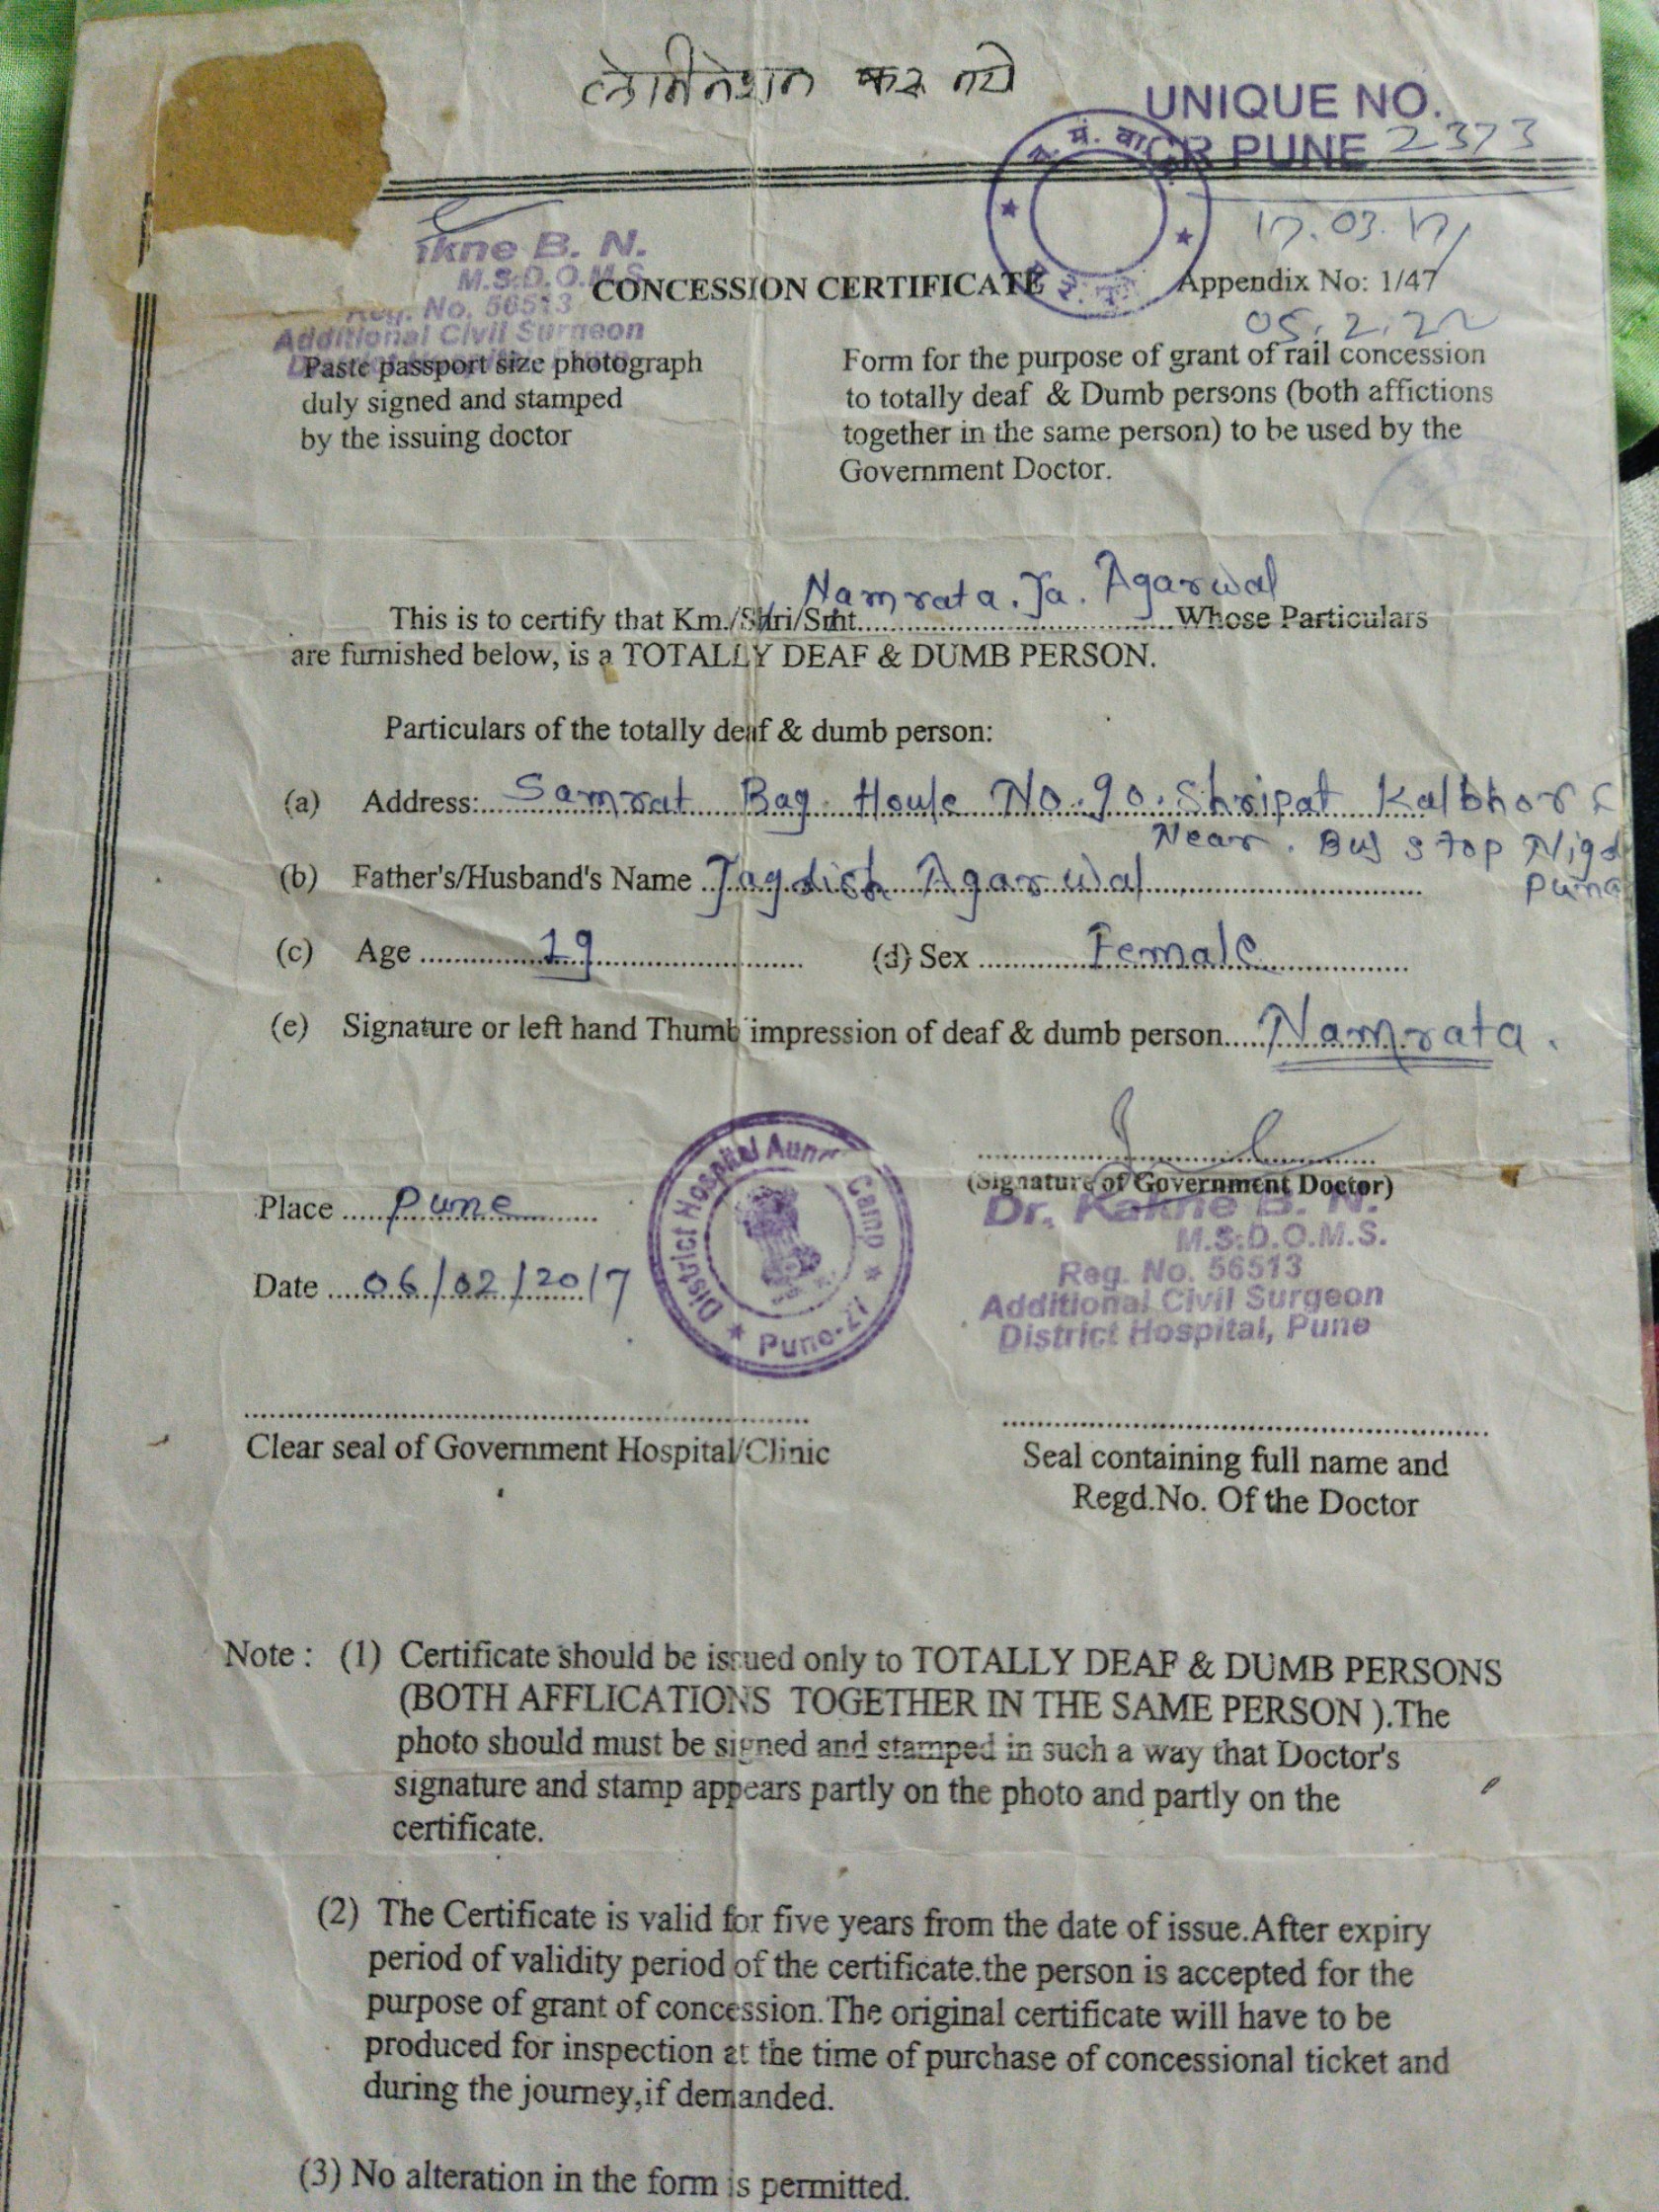 लेमिनेशन करू नये
UNIQUE NO.
CR PUNE 2373
17.03.17
ikne B. N.
M.S:D.O.M.S
Reg. No. 56513
Additional Civil Surgeon
CONCESSION CERTIFICATE
Appendix No: 1/47
05.2.22
Paste passport size photograph
duly signed and stamped
by the issuing doctor
Form for the purpose of grant of rail concession
to totally deaf & Dumb persons (both affictions
together in the same person) to be used by the
Government Doctor.
This is to certify that Km./Shri/Smt. Namrata. Ja. Agarwal Whose Particulars
are furnished below, is a TOTALLY DEAF & DUMB PERSON.
Particulars of the totally deaf & dumb person:
(a) Address: Samrat Bag House No. 90. Shripat Kalbhor
Near. Bus stop Nigd
Pune
(b) Father's/Husband's Name Jagdish Agarwal
(c) Age 19 (d) Sex Female
(e) Signature or left hand Thumb impression of deaf & dumb person Namrata.
(Signature of Government Doctor)
Dr. Kakne B. N.
M.S:D.O.M.S.
Reg. No. 56513
Additional Civil Surgeon
District Hospital, Pune
Place Pune
Date 06/02/2017
District Hospital Aundh Camp
Pune-27
Clear seal of Government Hospital/Clinic
Seal containing full name and
Regd.No. Of the Doctor
Note : (1) Certificate should be issued only to TOTALLY DEAF & DUMB PERSONS
(BOTH AFFLICATIONS TOGETHER IN THE SAME PERSON ).The
photo should must be signed and stamped in such a way that Doctor's
signature and stamp appears partly on the photo and partly on the
certificate.
(2) The Certificate is valid for five years from the date of issue.After expiry
period of validity period of the certificate.the person is accepted for the
purpose of grant of concession.The original certificate will have to be
produced for inspection at the time of purchase of concessional ticket and
during the journey,if demanded.
(3) No alteration in the form is permitted.